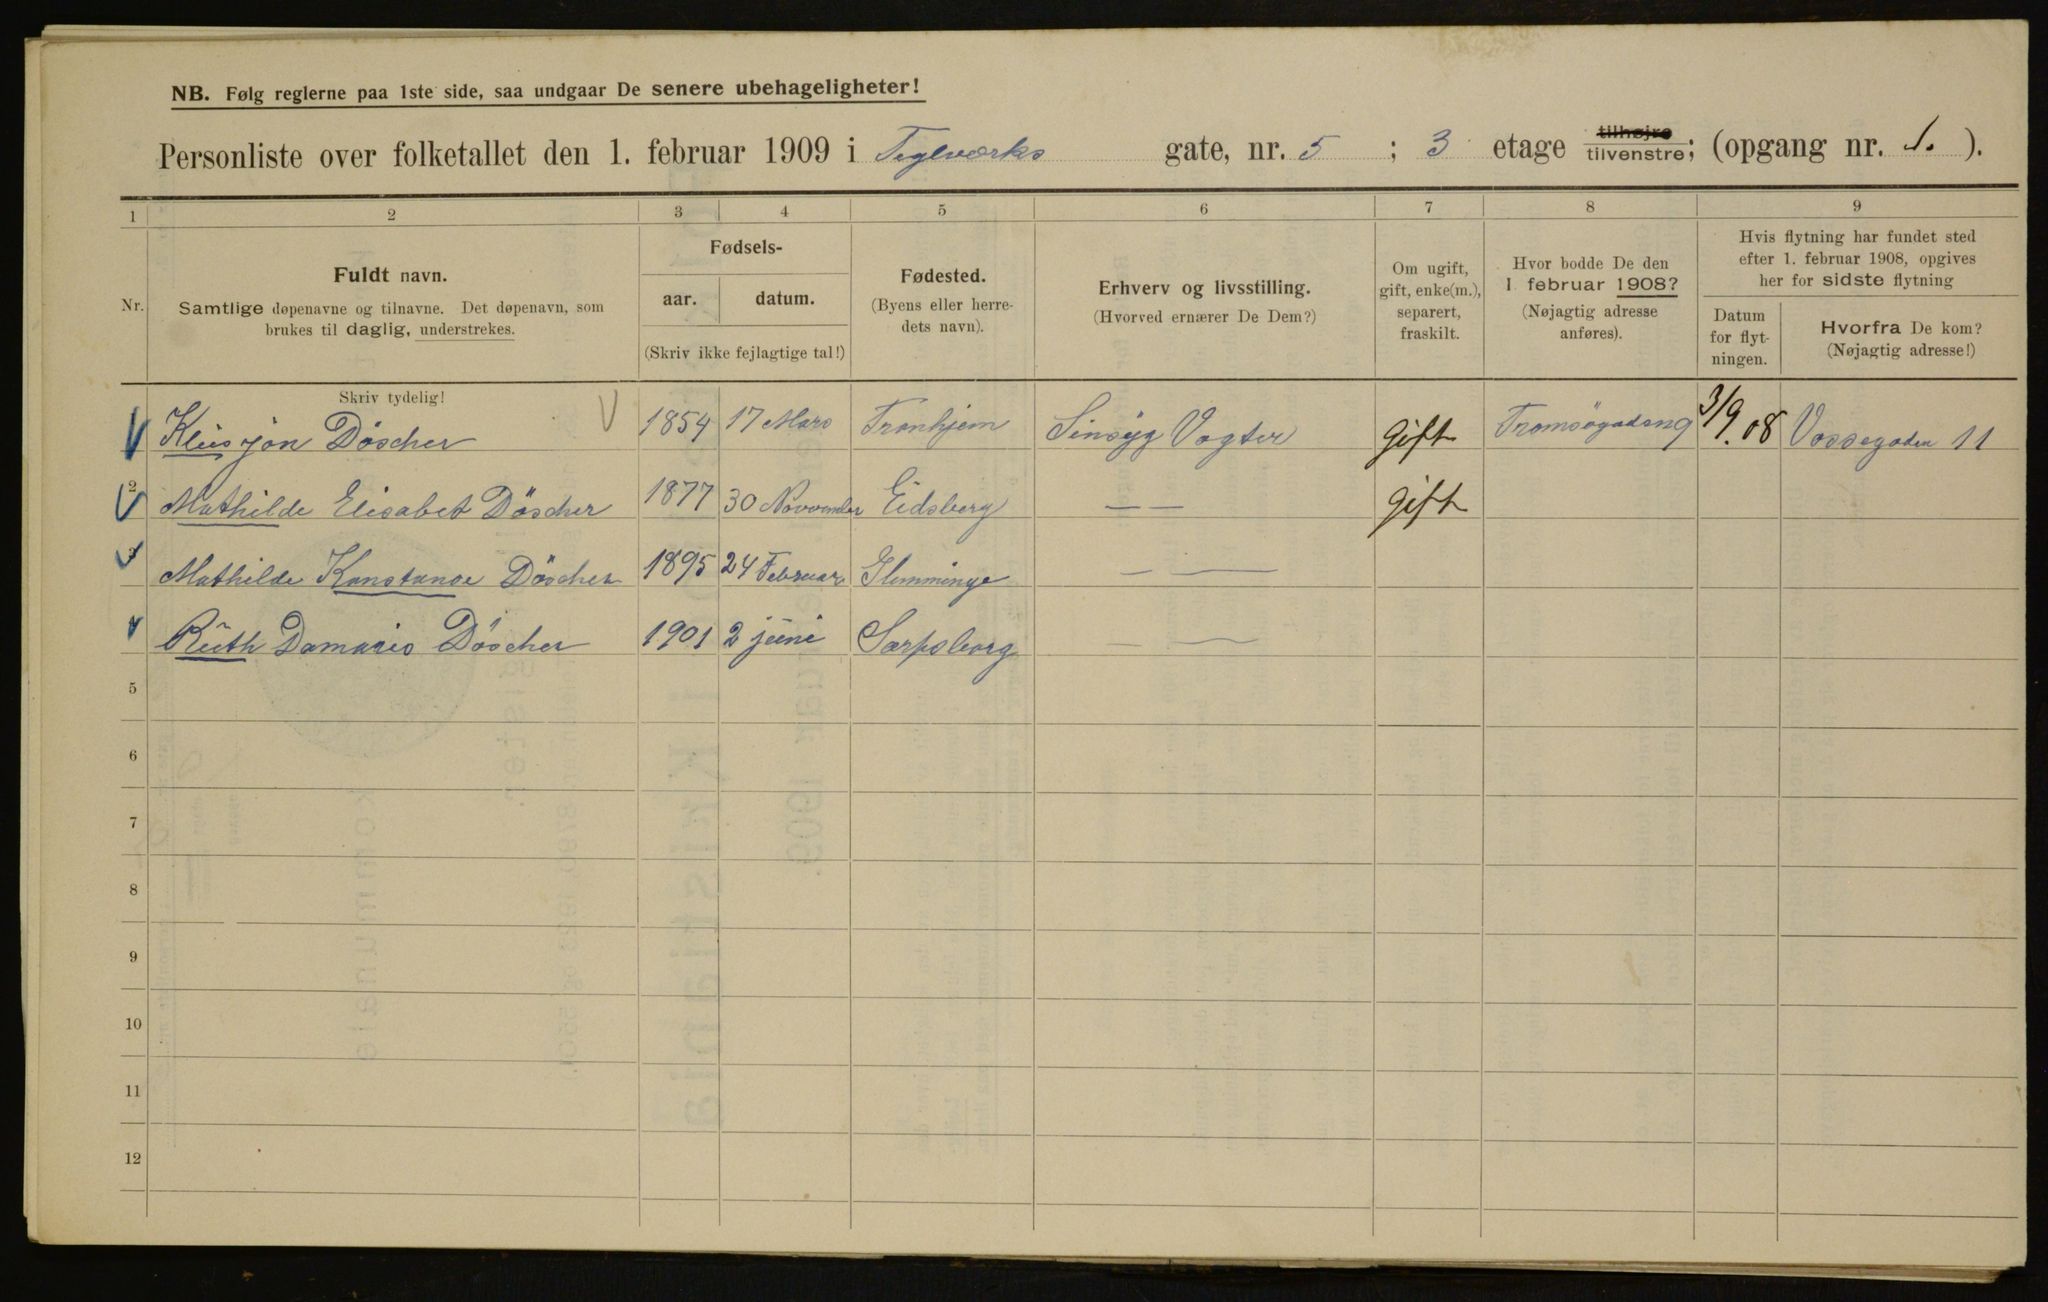 NB. Følg reglerne paa 1ste side, saa undgaar De senere ubehageligheter!
Personliste over folketallet den 1. februar 1909 i Teglværks gate, nr. 5 ; 3 etage tilhøjre tilvenstre; (opgang nr. 1. ).
1 2 3 4 5 6 7 8 9
Nr.
Fuldt navn.
Samtlige døpenavne og tilnavne. Det døpenavn, som
brukes til daglig, understrekes.
Fødsels-
aar. datum.
(Skriv ikke fejlagtige tal!)
Fødested.
(Byens eller herre-
dets navn).
Erhverv og livsstilling.
(Hvorved ernærer De Dem?)
Om ugift,
gift, enke(m.),
separert,
fraskilt.
Hvor bodde De den
1. februar 1908?
(Nøjagtig adresse
anføres).
Hvis flytning har fundet sted
efter 1. februar 1908, opgives
her for sidste flytning
Datum
for flyt-
ningen.
Hvorfra De kom?
(Nøjagtig adresse!)
Skriv tydelig!
Döscher 1854 17 Mars Tronhjem Sinsyg Vogter gift Tromsögaden 9 3/9.08 Vossegaden 11
2 Mathilde Elisabet Döscher 1877 30 November Eidsberg — — gift
3 Mathilde Konstanse Döscher 1895 24 Februar Glemminge — —
4 Ruth Damaris Döscher 1901 2 juni Sarpsborg — —
5
6
7
8
9
10
11
12